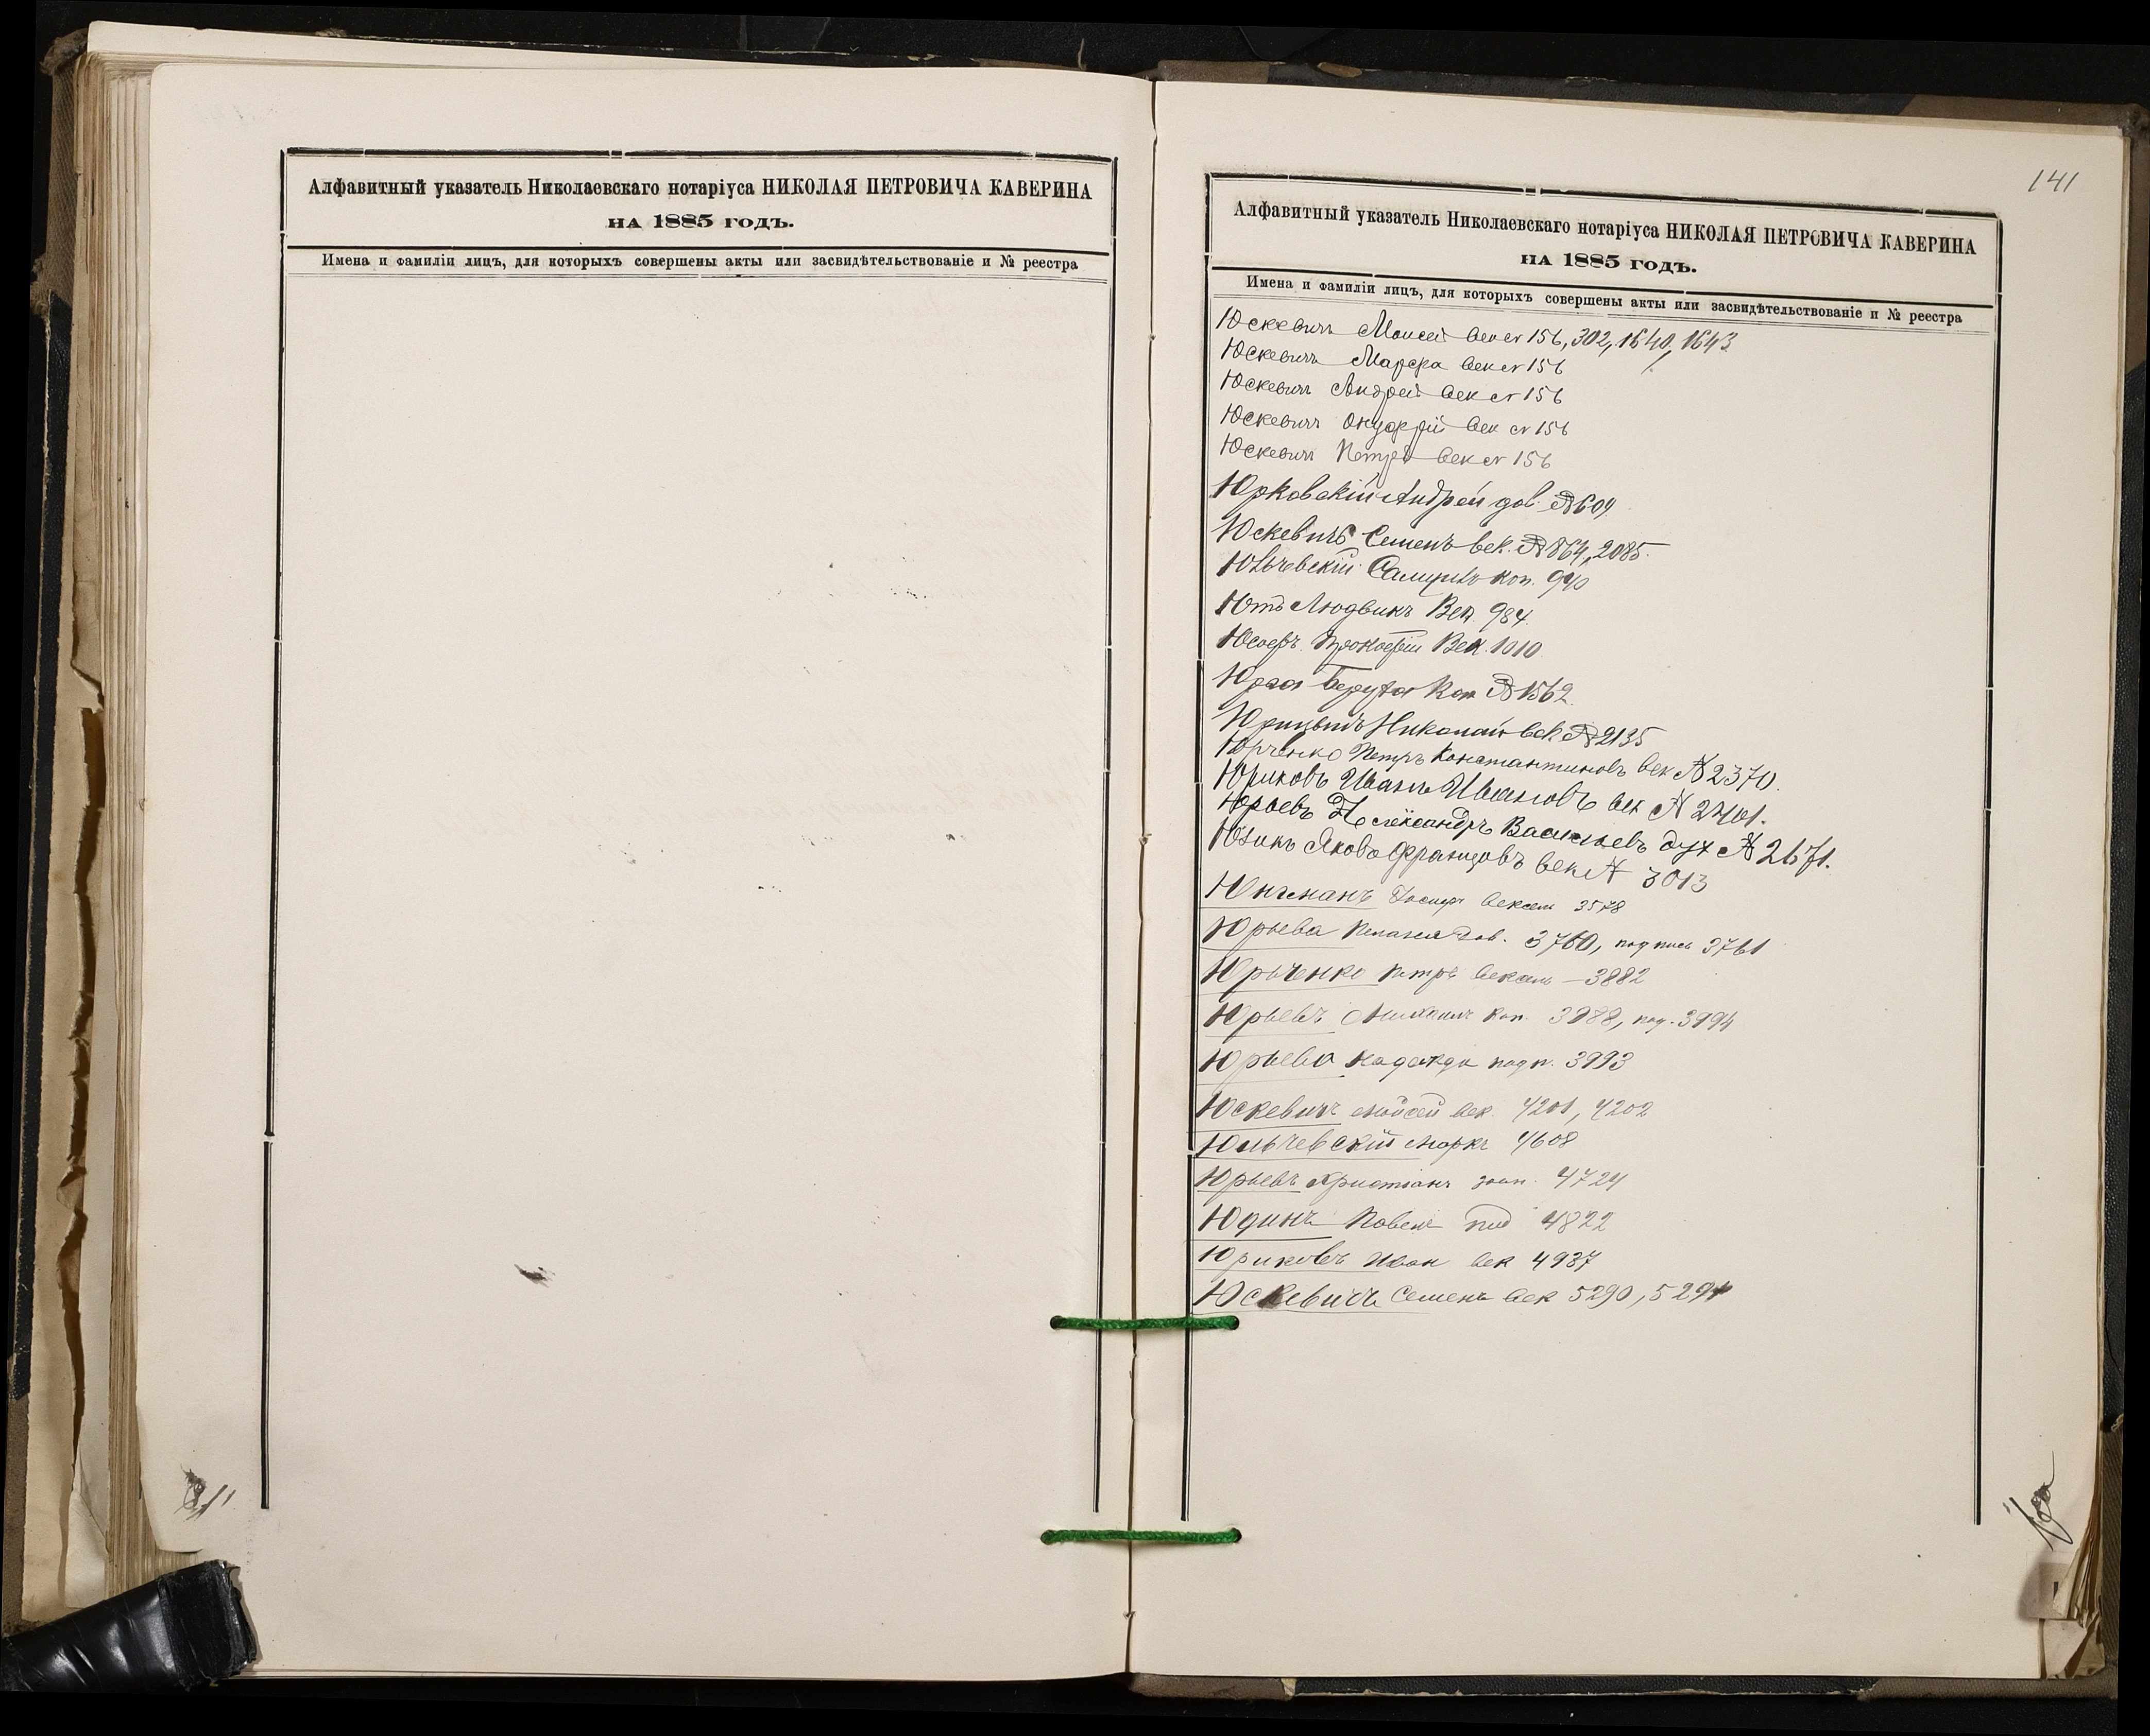 Алфавитный указатель Николаевскаго нотаріуса НИКОЛАЯ ПЕТРОВИЧА КАВЕРИНА
НА 1885 ГОДЪ.
Имена и фамиліи лицъ, для которыхъ совершены акты или засвидѣтельствованіе и № реестра
141
Алфавитный указатель Николаевскаго нотаріуса НИКОЛАЯ ПЕТРОВИЧА КАВЕРИНА
НА 1885 ГОДЪ.
Имена и фамиліи лицъ, для которыхъ совершены акты или засвидѣтельствованіе и № реестра
Юскевичъ Моисей век № 156, 302, 1640, 1643
Юскевичъ Марфа век № 156
Юскевичъ Андрей век № 156
Юскевичъ Онуфрій век № 156
Юскевичъ Петръ век № 156
Юрковскій Андрей дов. № 609
Юскевичъ Семенъ век. № 864, 2085.
коп. 940
Ютъ Людвикъ Век. 984.
Прокофій Век. 1010
Коп № 1562
Юрицынъ Николай век № 2135
Юрченко Петръ Константиновъ век № 2370.
Юриковъ Иванъ Ивановъ век № 2401.
Юрьевъ Александръ Васильевъ дух № 2671.
Юзикъ Яковъ Францовъ век № 3013
Юнгманъ Іосифъ вексель 3578
Юрьева Пелагея дов. 3760, подпись 3761
Юрченко Петръ вексель 3882
Юрьевъ Михаилъ коп. 3988, под. 3994
Юрьева Надежда подп. 3993
Юскевичъ Мойсей век. 4201, 4202
Юльчевскій Маркъ 4608
Юрьевъ Христіанъ 4724
Юдинъ Павелъ 4822
Юриковъ Иван век 4937
Юскевичъ Семенъ век 5290, 5291